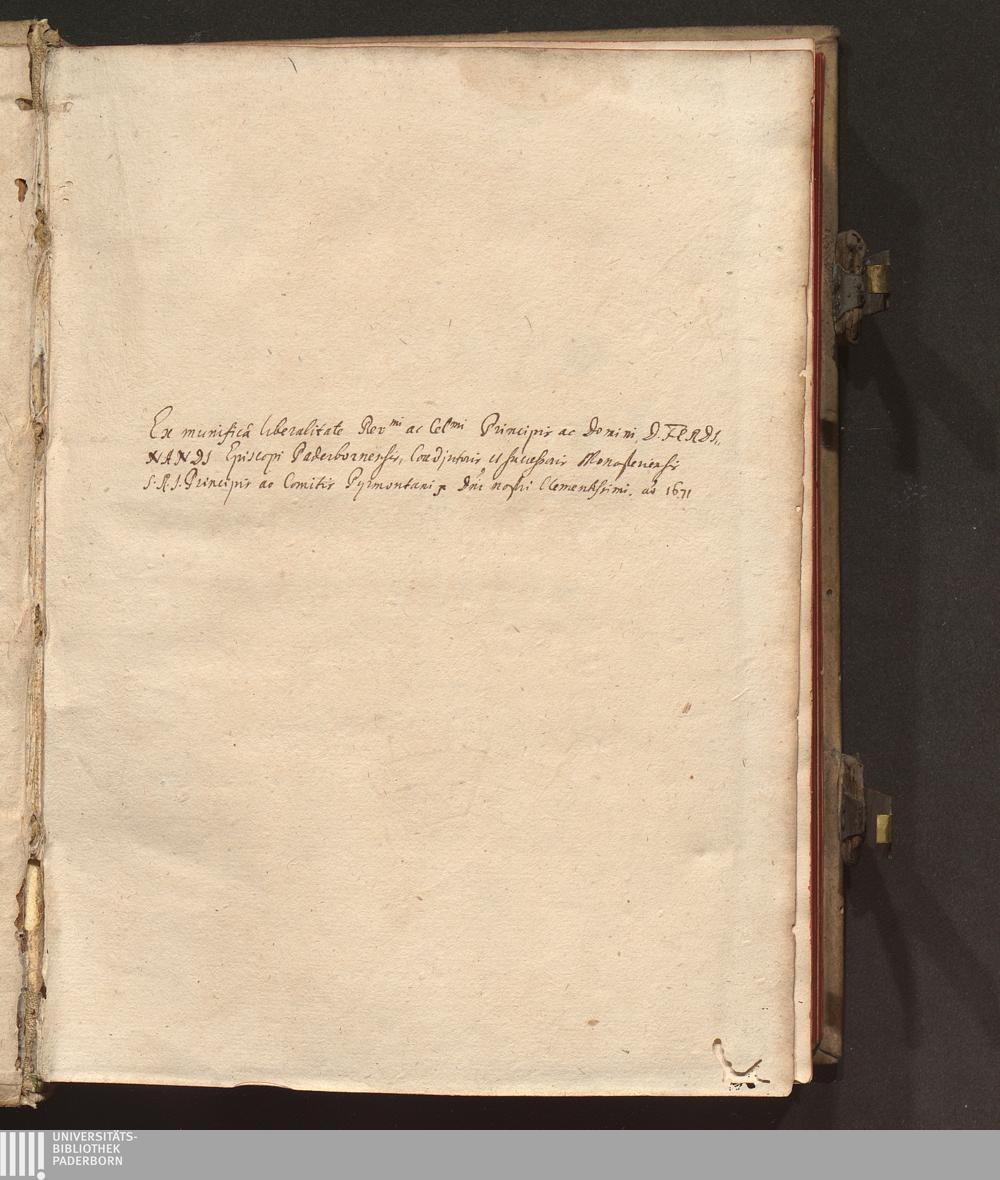 Ex munificâ liberalitate Rev^mi ac Cel^mi Principis ac Domini, D. FERDI,,
NANDI Episcopi Paderbornensis, Coadjutoris et successoris Monasteriensis
S. R. I. Principis ac Comitis Pyrmontani p Dn̄i nostri Clementissimi. aō 1671
UNIVERSITÄTS-
BIBLIOTHEK
PADERBORN